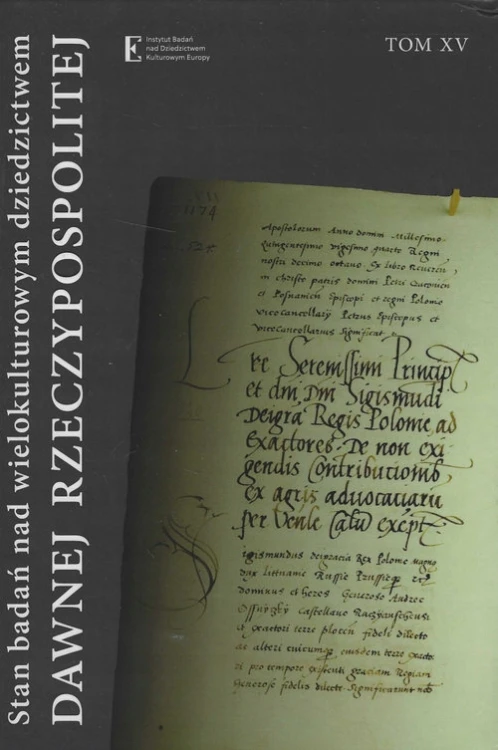 Stan badań nad wielokulturowym dziedzictwem
DAWNEJ RZECZYPOSPOLITEJ
Instytut Badań
nad Dziedzictwem
Kulturowym Europy
TOM XV
1174
Apostolorum Anno domini Millesimo
quingentesimo vigesimo quarto Regni
nostri decimo octavo Ex libro
in christo patris domini Petri
et Posnanien Episcopi et regni Polonie
vicecancellarii Petrus Episcopus et
vicecancellarius significat
Lre Serenissimi Princip
et dni Dni Sigismudi
Deigra Regis Polonie ad
Exactores De non exi
gendis Contributionib
ex agris advocatiaru
per
Sigismundus deigracia Rex Polonie magno
dux Littuanie Russie Prussieque
dominus et heres Generoso Andree
castellano
et exactori terre plocen fideli dilecto
ac alteri cuicumque eiusdem terre exacto
ri pro tempore existenti graciam Regiam
Generose fidelis dilecte Significarunt